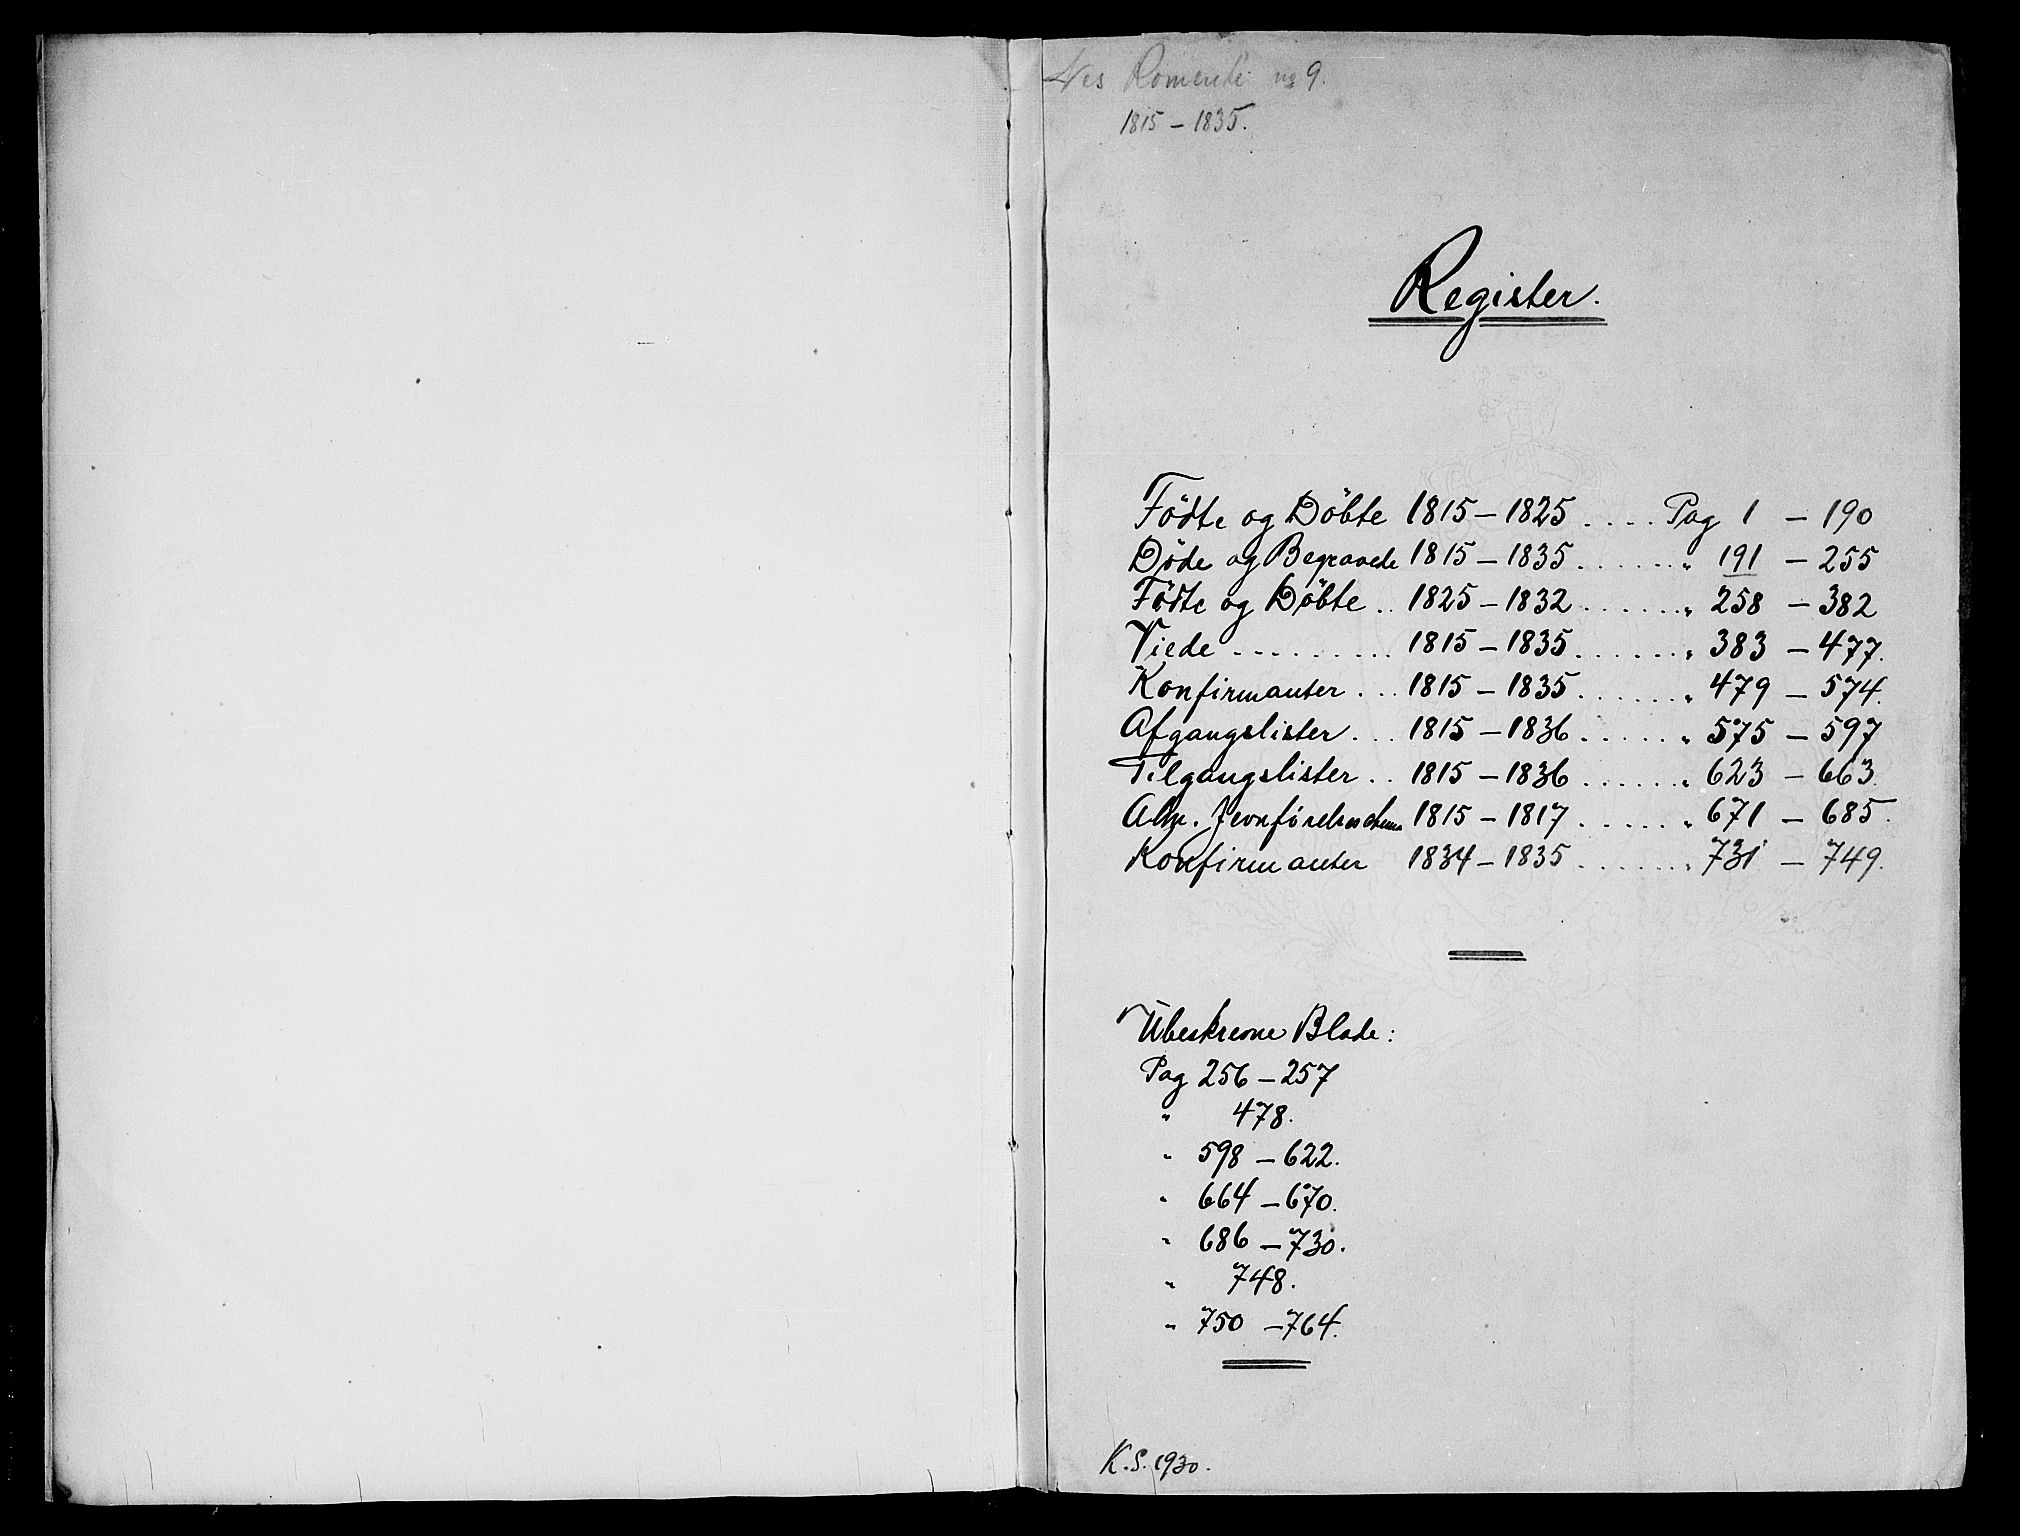 Nes Romerike no 9.
1815 – 1835.
Register.
Födte og Döbte 1815 – 1825 .... Pag 1 – 190
Døde og Begravede 1815 – 1835 ....... " 191 – 255
Födte og Döbte .. 1825 – 1832 ....... " 258 – 382
Viede ......... 1815 – 1835 ....... " 383 – 477.
Konfirmanter ... 1815 – 1835 ....... " 479 – 574.
Afgangslister ... 1815 – 1836 ...... " 575 – 597
Tilgangslister .. 1815 – 1836 ...... " 623 – 663.
Alm. Jevnførelsesschema 1815 – 1817 ...... " 671 – 685.
Konfirmanter 1834 – 1835 ....... " 731 – 749.
Ubeskrevne Blade:
Pag 256 – 257
" 478.
" 598 – 622.
" 664 – 670.
" 686 – 730.
" 748.
" 750 – 764.
K.S. 1930.